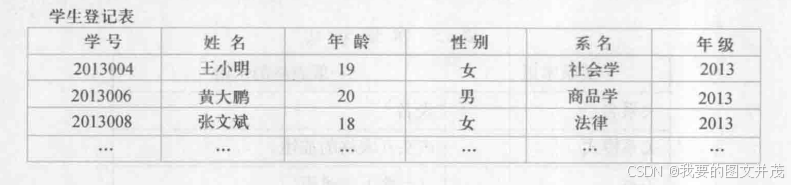 学生登记表
学 号 姓 名 年 龄 性 别 系 名 年 级
2013004 王小明 19 女 社会学 2013
2013006 黄大鹏 20 男 商品学 2013
2013008 张文斌 18 女 法律 2013
… … … … … …
CSDN @我要的图文并茂